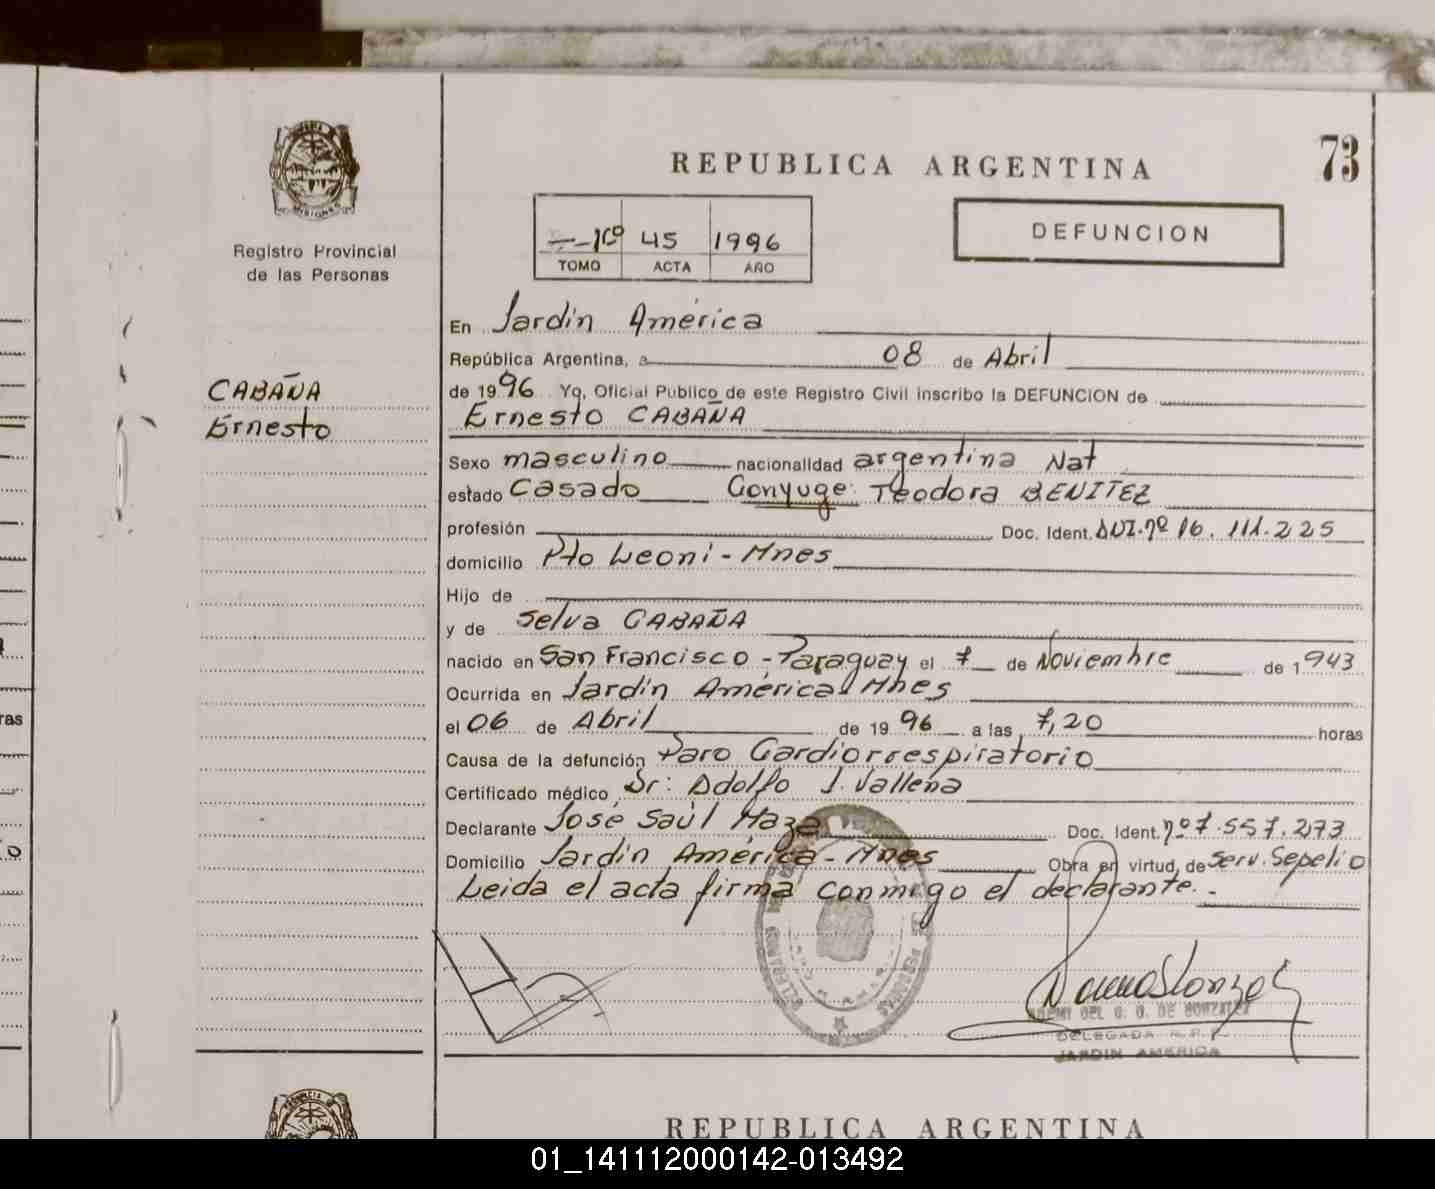 73
REPUBLICA ARGENTINA
DEFUNCION
Nº 45 1996
TOMO ACTA AÑO
Registro Provincial
de las Personas
CABAÑA
Ernesto
En Jardín América
República Argentina, a 08 de Abril
de 1996 Yo, Oficial Publico de este Registro Civil inscribo la DEFUNCION de
Ernesto CABAÑA
Sexo masculino nacionalidad argentina Nat
estado Casado Conyuge: Teodora BENITEZ
profesión Doc. Ident. DNI. nº 16.111.225
domicilio Pto Leoni - Mnes
Hijo de
y de Selva CABAÑA
nacido en San Francisco - Paraguay el 7 de Noviembre de 1943
Ocurrida en Jardín América Mnes
el 06 de Abril de 1996 a las 7,20 horas
Causa de la defunción Paro Cardiorrespiratorio
Certificado médico Dr: Adolfo J. Vallena
Declarante José Saúl Maza Doc. Ident. nº 7.557.273
Domicilio Jardín América - Mnes Obra en virtud de Serv. Sepelio
Leida el acta firma conmigo el declarante.-
DE GONZALEZ
DELEGADA R.P.
JARDIN AMERICA
REPUBLICA ARGENTINA
01_141112000142-013492